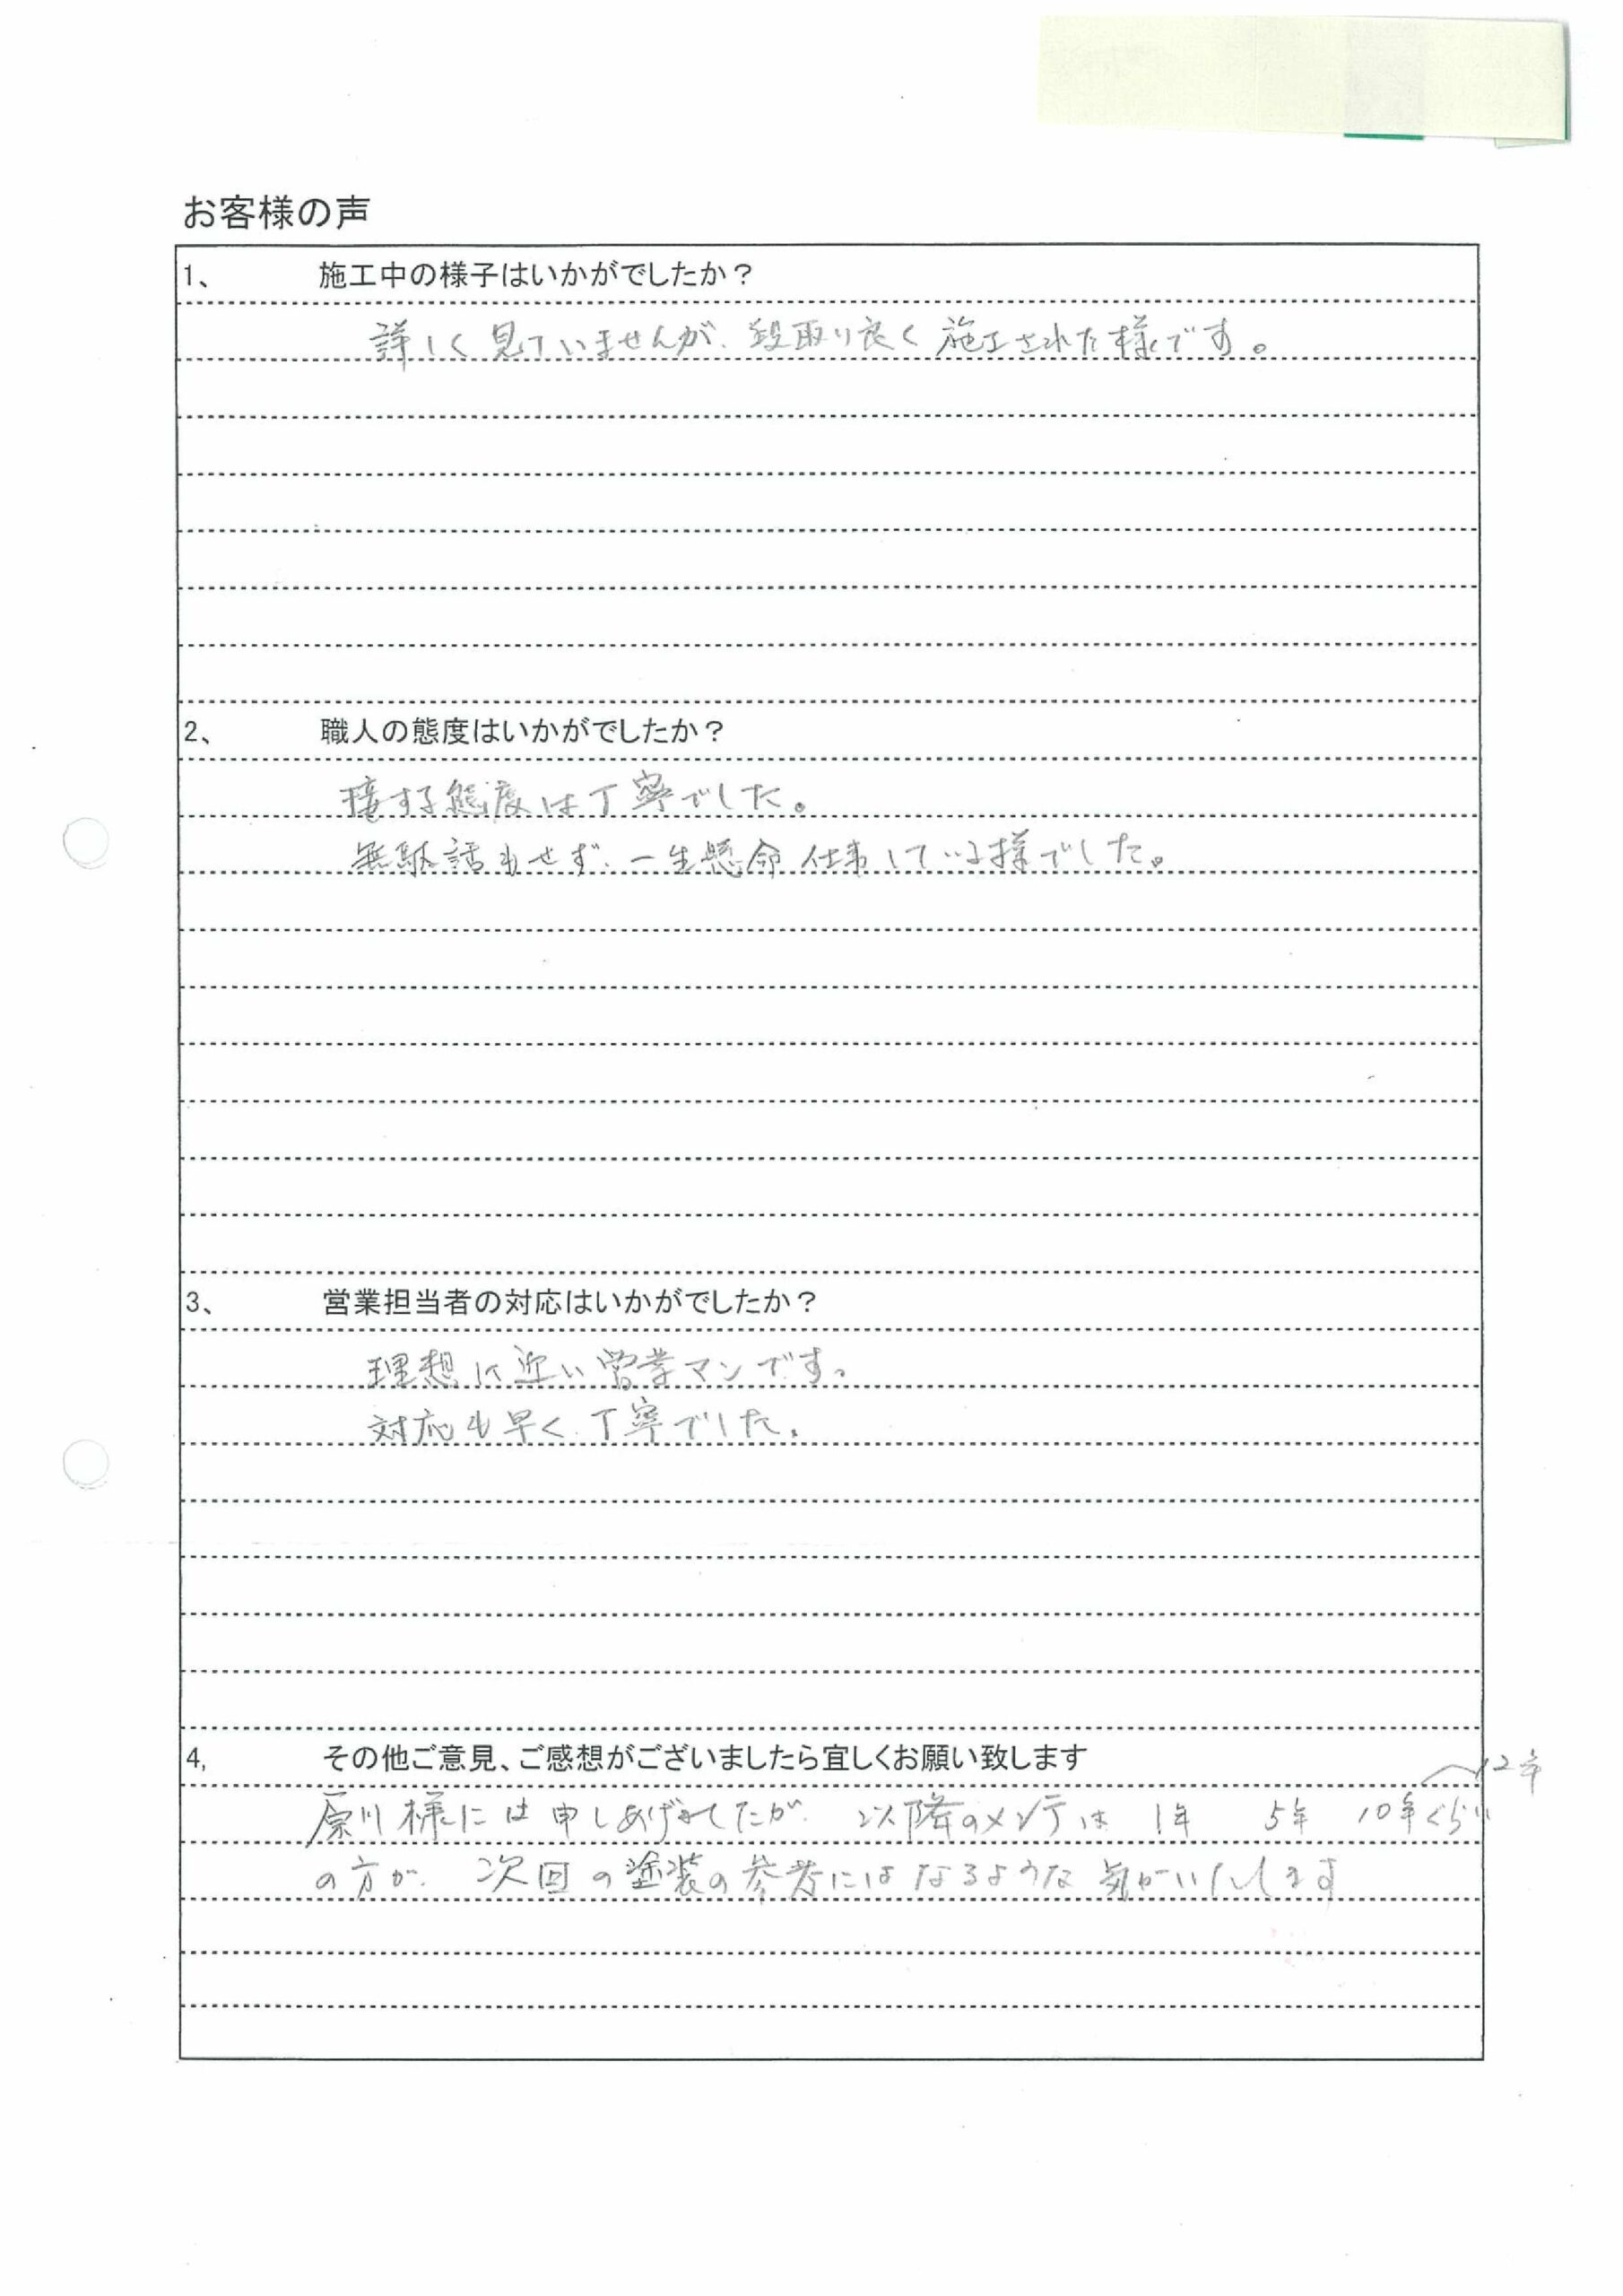 お客様の声
1、 施工中の様子はいかがでしたか？
詳しく見ていませんが、段取り良く施工された様です。
2、 職人の態度はいかがでしたか？
接する態度は丁寧でした。
無駄話もせず、一生懸命仕事している様でした。
3、 営業担当者の対応はいかがでしたか？
理想に近い営業マンです。
対応も早く、丁寧でした。
4, その他ご意見、ご感想がございましたら宜しくお願い致します
〜12年
原川様には申しあげましたが、以降のメンテは 1年 5年 10年くらい
の方が、次回の塗装の参考にはなるような気がいたします